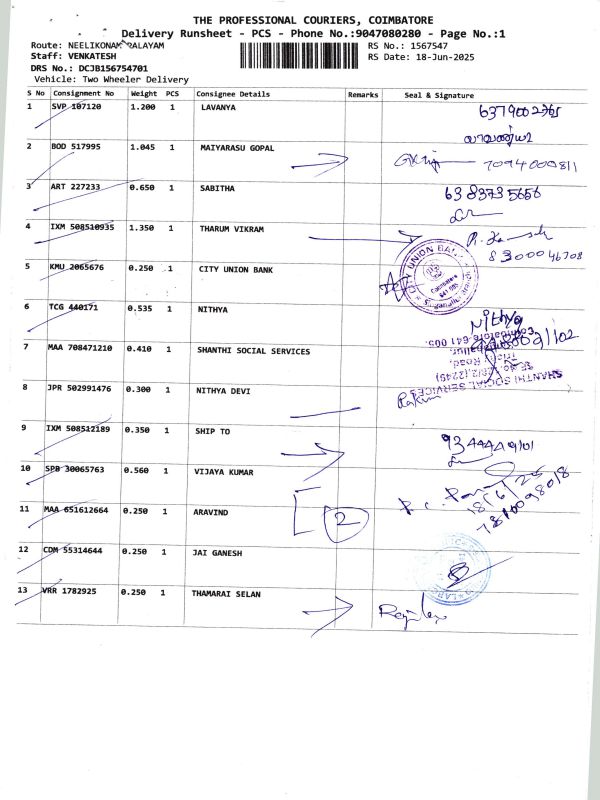 THE PROFESSIONAL COURIERS, COIMBATORE
Delivery Runsheet - PCS - Phone No.:9047080280 - Page No.:1
Route: NEELIKONAMPALAYAM
RS No.: 1567547
Staff: VENKATESH
RS Date: 18-Jun-2025
DRS No.: DCJB156754701
Vehicle: Two Wheeler Delivery
S No Consignment No Weight PCS Consignee Details Remarks Seal & Signature
1 SVP 107120 1.200 1 LAVANYA
லாவண்யா
2 BOD 517995 1.045 1 MAIYARASU GOPAL 7094000811
3 ART 227233 0.650 1 SABITHA 6383735656
4 IXM 508510935 1.350 1 THARUM VIKRAM
8300046708
5 KMU 2065676 0.250 1 CITY UNION BANK CITY UNION BANK
Coimbatore
6 TCG 440171 0.535 1 NITHYA Nithya
7 MAA 708471210 0.410 1 SHANTHI SOCIAL SERVICES
SHANTHI SOCIAL SERVICES
Trichy Road,
Coimbatore-641 005.
8 JPR 502991476 0.300 1 NITHYA DEVI
9 IXM 508512189 0.350 1 SHIP TO
10 SPB 30065763 0.560 1 VIJAYA KUMAR
18/6/25
11 MAA 651612664 0.250 1 ARAVIND 2
12 CDM 55314644 0.250 1 JAI GANESH
13 VRR 1782925 0.250 1 THAMARAI SELAN